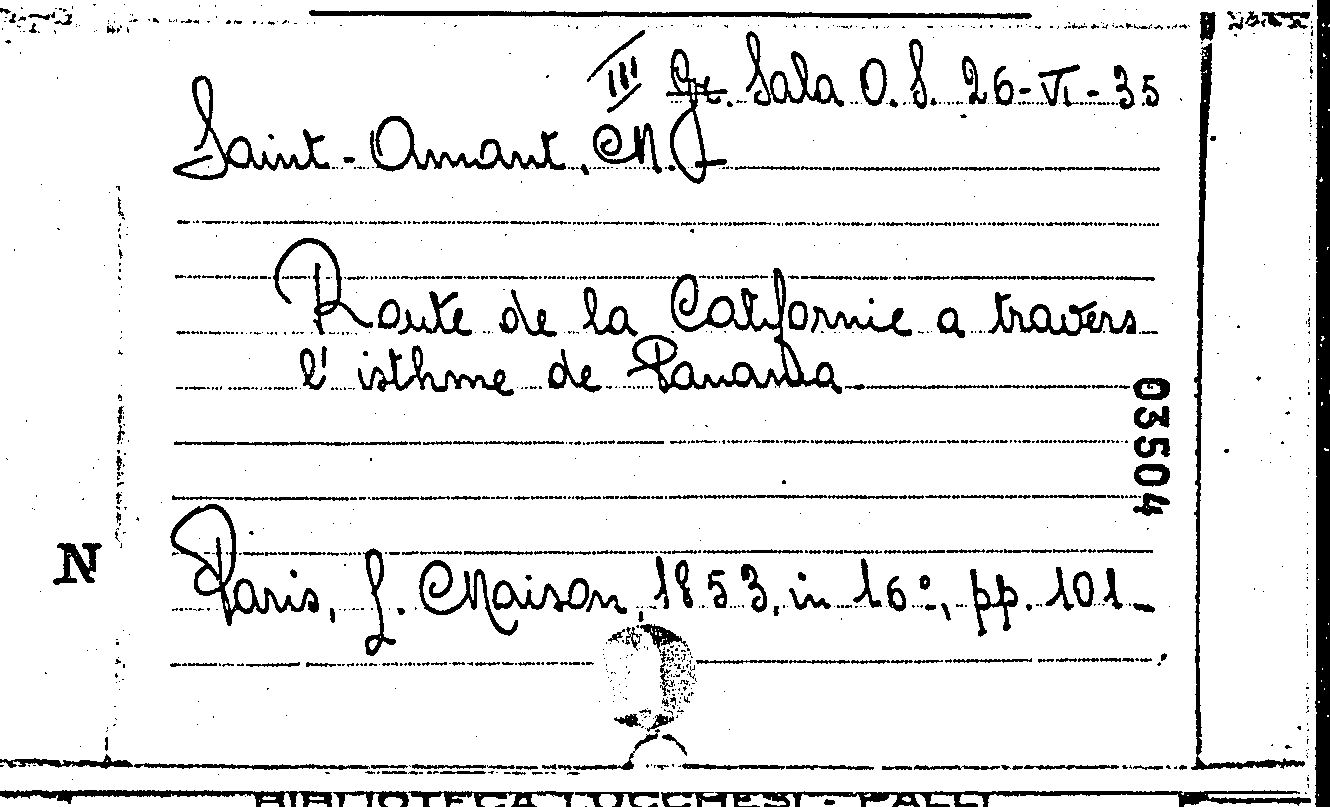 III Gr. Sala O. S. 26-VI-35
Saint-Amant, M. J
Route de la California a travers
l'isthme de Panama
03504
N
Paris, L. Maison, 1853, in 16°, pp. 101
BIBLIOTECA LUCCHESI - PALLI